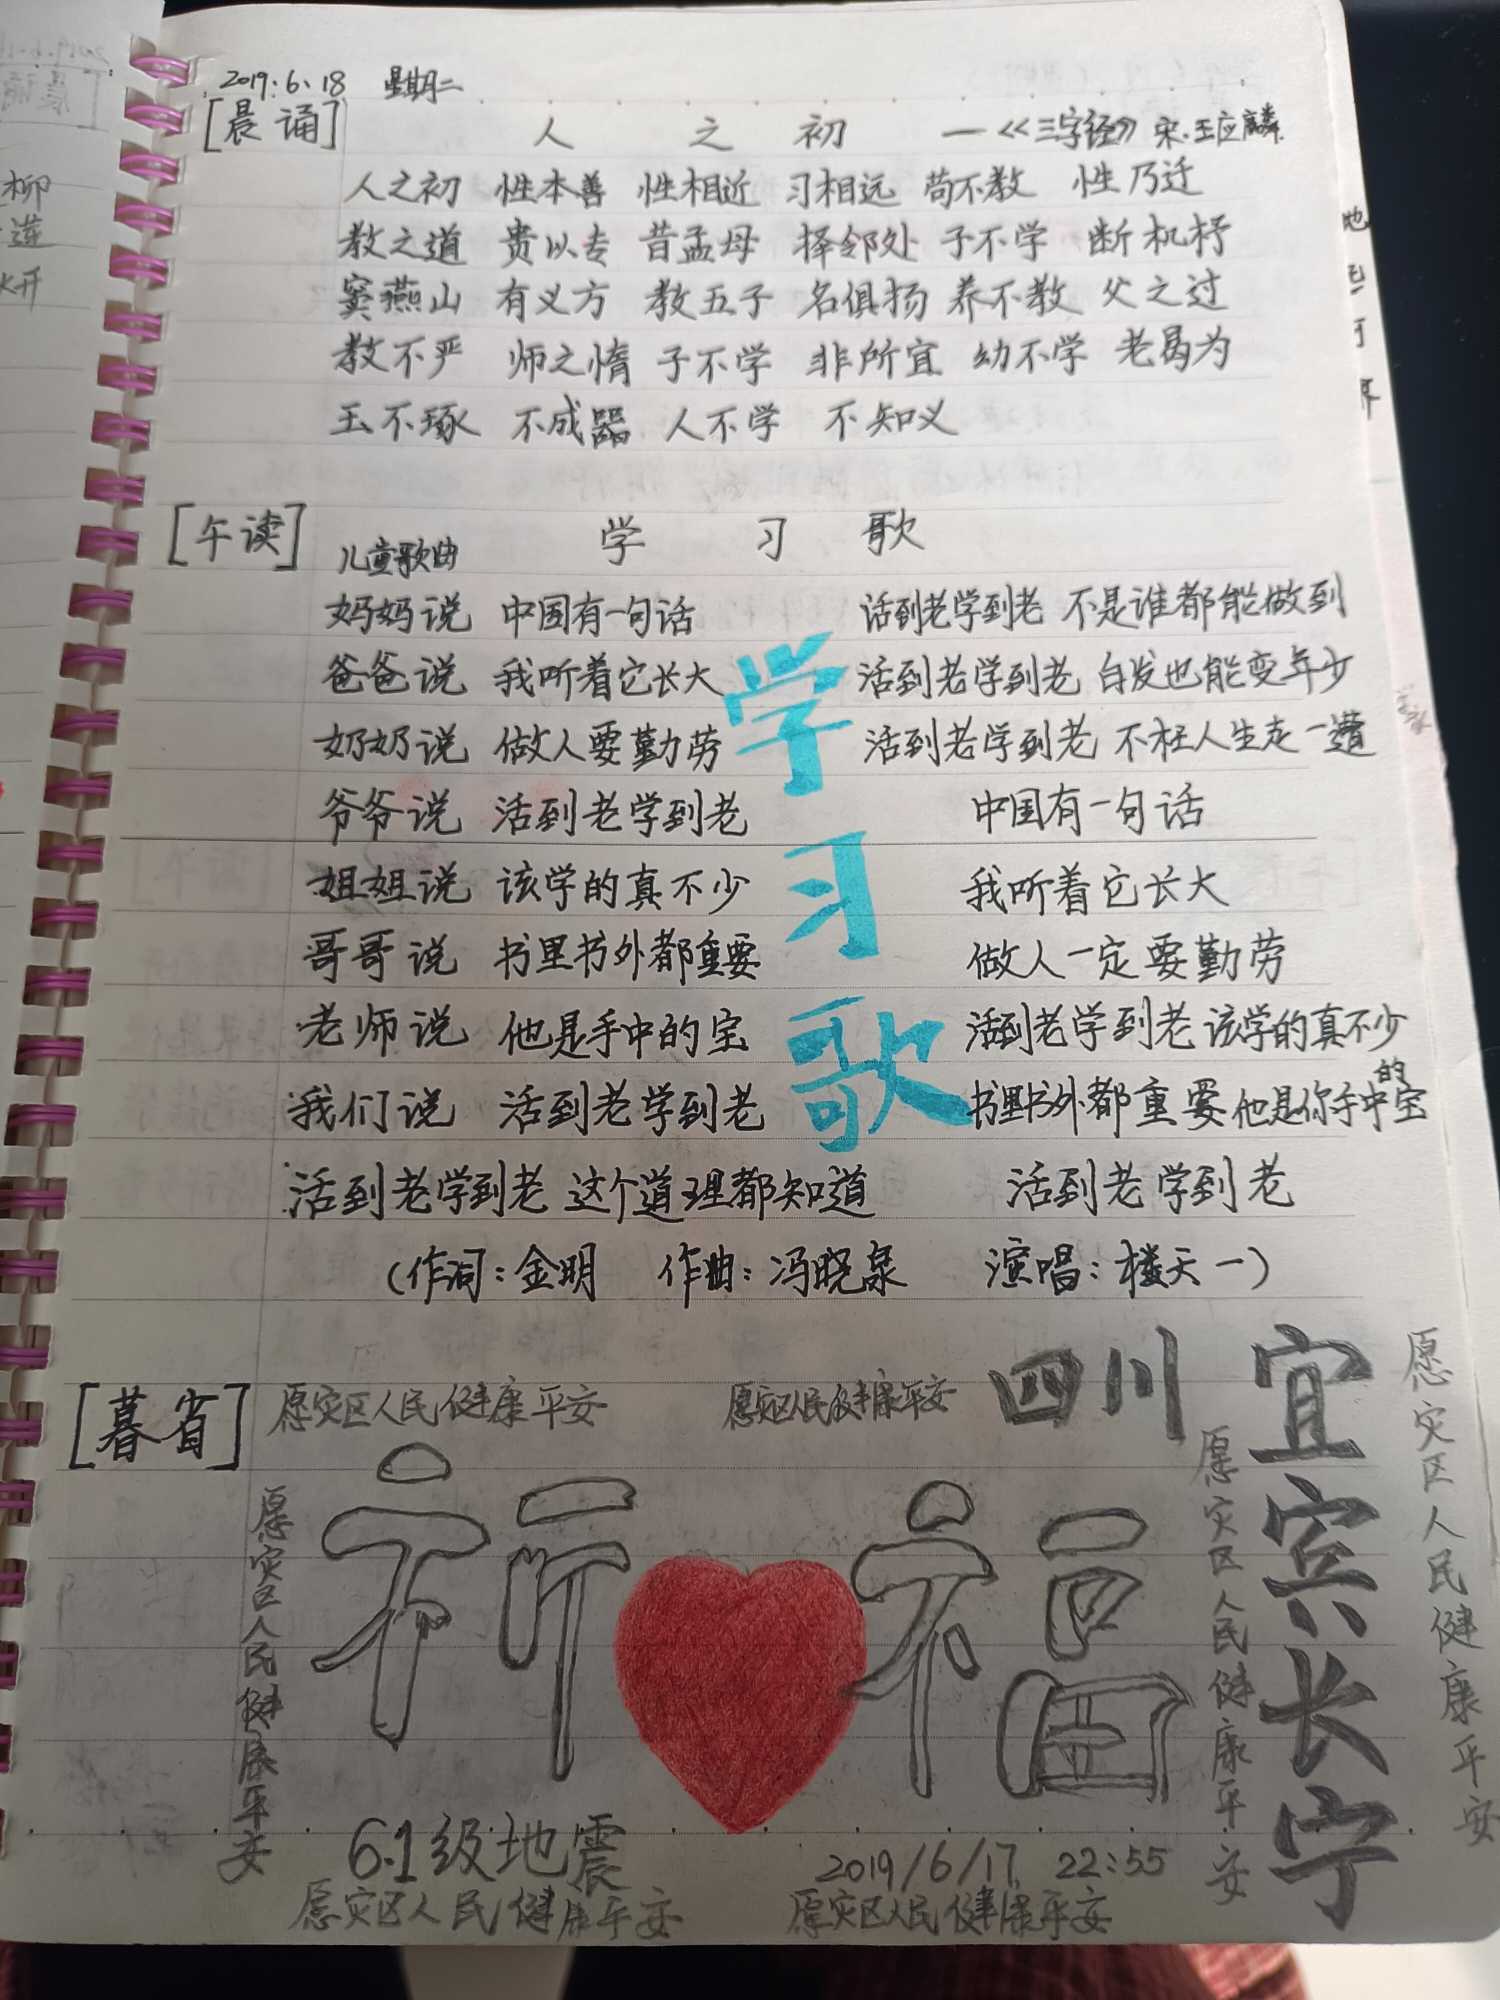 2019.6.18 星期二
[晨诵] 人之初 —《三字经》宋·王应麟
人之初 性本善 性相近 习相远 苟不教 性乃迁
教之道 贵以专 昔孟母 择邻处 子不学 断机杼
窦燕山 有义方 教五子 名俱扬 养不教 父之过
教不严 师之惰 子不学 非所宜 幼不学 老曷为
玉不琢 不成器 人不学 不知义
[午读] 儿童歌曲 学习歌
妈妈说 中国有一句话 活到老学到老 不是谁都能做到
爸爸说 我听着它长大 活到老学到老 白发也能变年少
奶奶说 做人要勤劳 活到老学到老 不枉人生走一遭
爷爷说 活到老学到老 中国有一句话
姐姐说 该学的真不少 我听着它长大
哥哥说 书里书外都重要 做人一定要勤劳
老师说 他是手中的宝 活到老学到老 该学的真不少
我们说 活到老学到老 书里书外都重要 他是你手中的宝
活到老学到老 这个道理都知道 活到老学到老
(作词:金明 作曲:冯晓泉 演唱:楼天一)
学习歌
[暮省] 愿灾区人民健康平安 愿灾区人民健康平安 四川
宜宾长宁
愿灾区人民健康平安
愿灾区人民健康平安
愿灾区人民健康平安
祈福
6.1级地震 2019/6/17 22:55
愿灾区人民健康平安 愿灾区人民健康平安